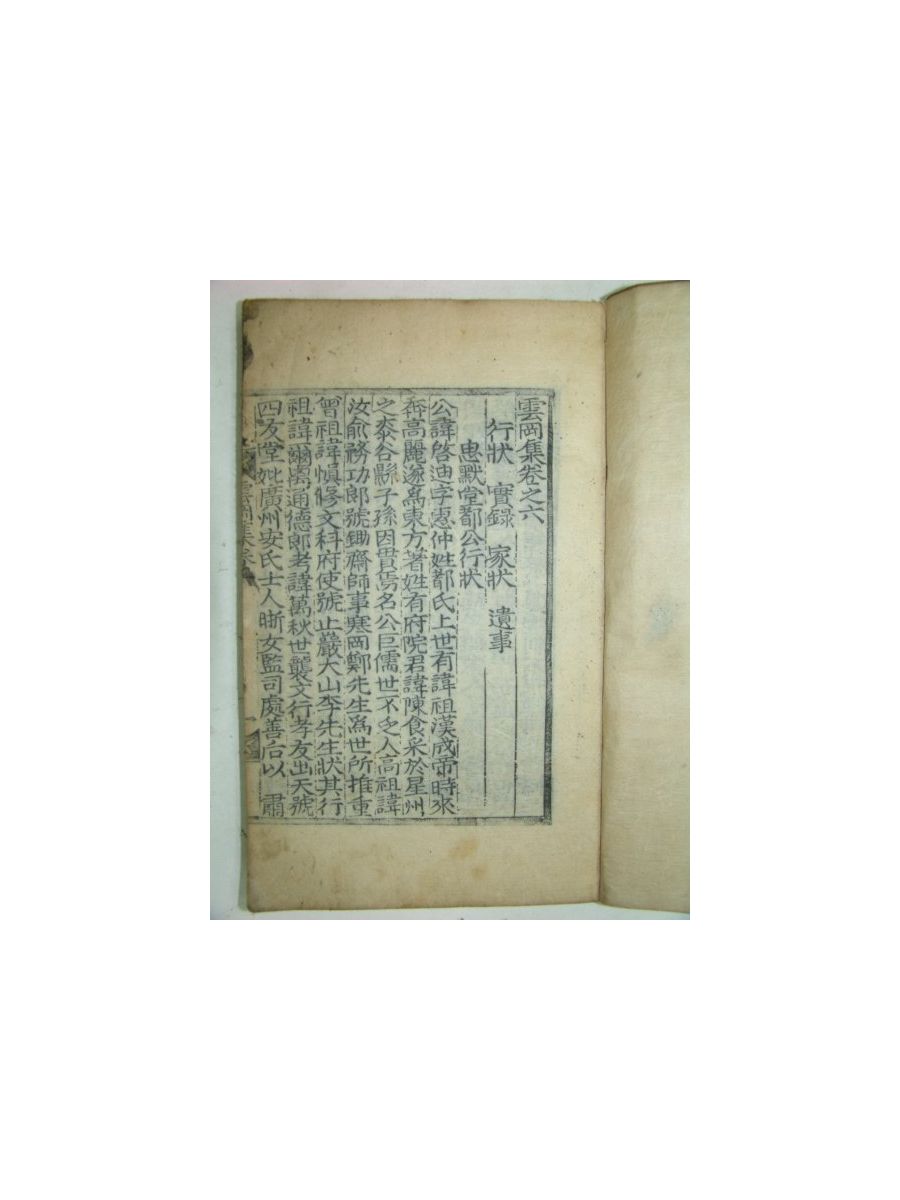 雲岡集卷之六
行狀 實錄 家狀 遺事
忠默堂都公行狀
公諱啓迪字惠仲姓都氏上世有諱祖漢成帝時來
奔高麗遂爲東方著姓有府院君諱陳食采於星州
之泰谷縣子孫因貫焉名公巨儒世不乏人高祖諱
汝兪務功郎號鋤齋師事寒岡鄭先生爲世所推重
曾祖諱愼修文科府使號止巖大山李先生狀其行
祖諱爾 通德郎考諱萬秋世襲文行孝友出天號
四友堂妣廣州安氏士人晣女監司處善后以 肅
雲岡集卷 一